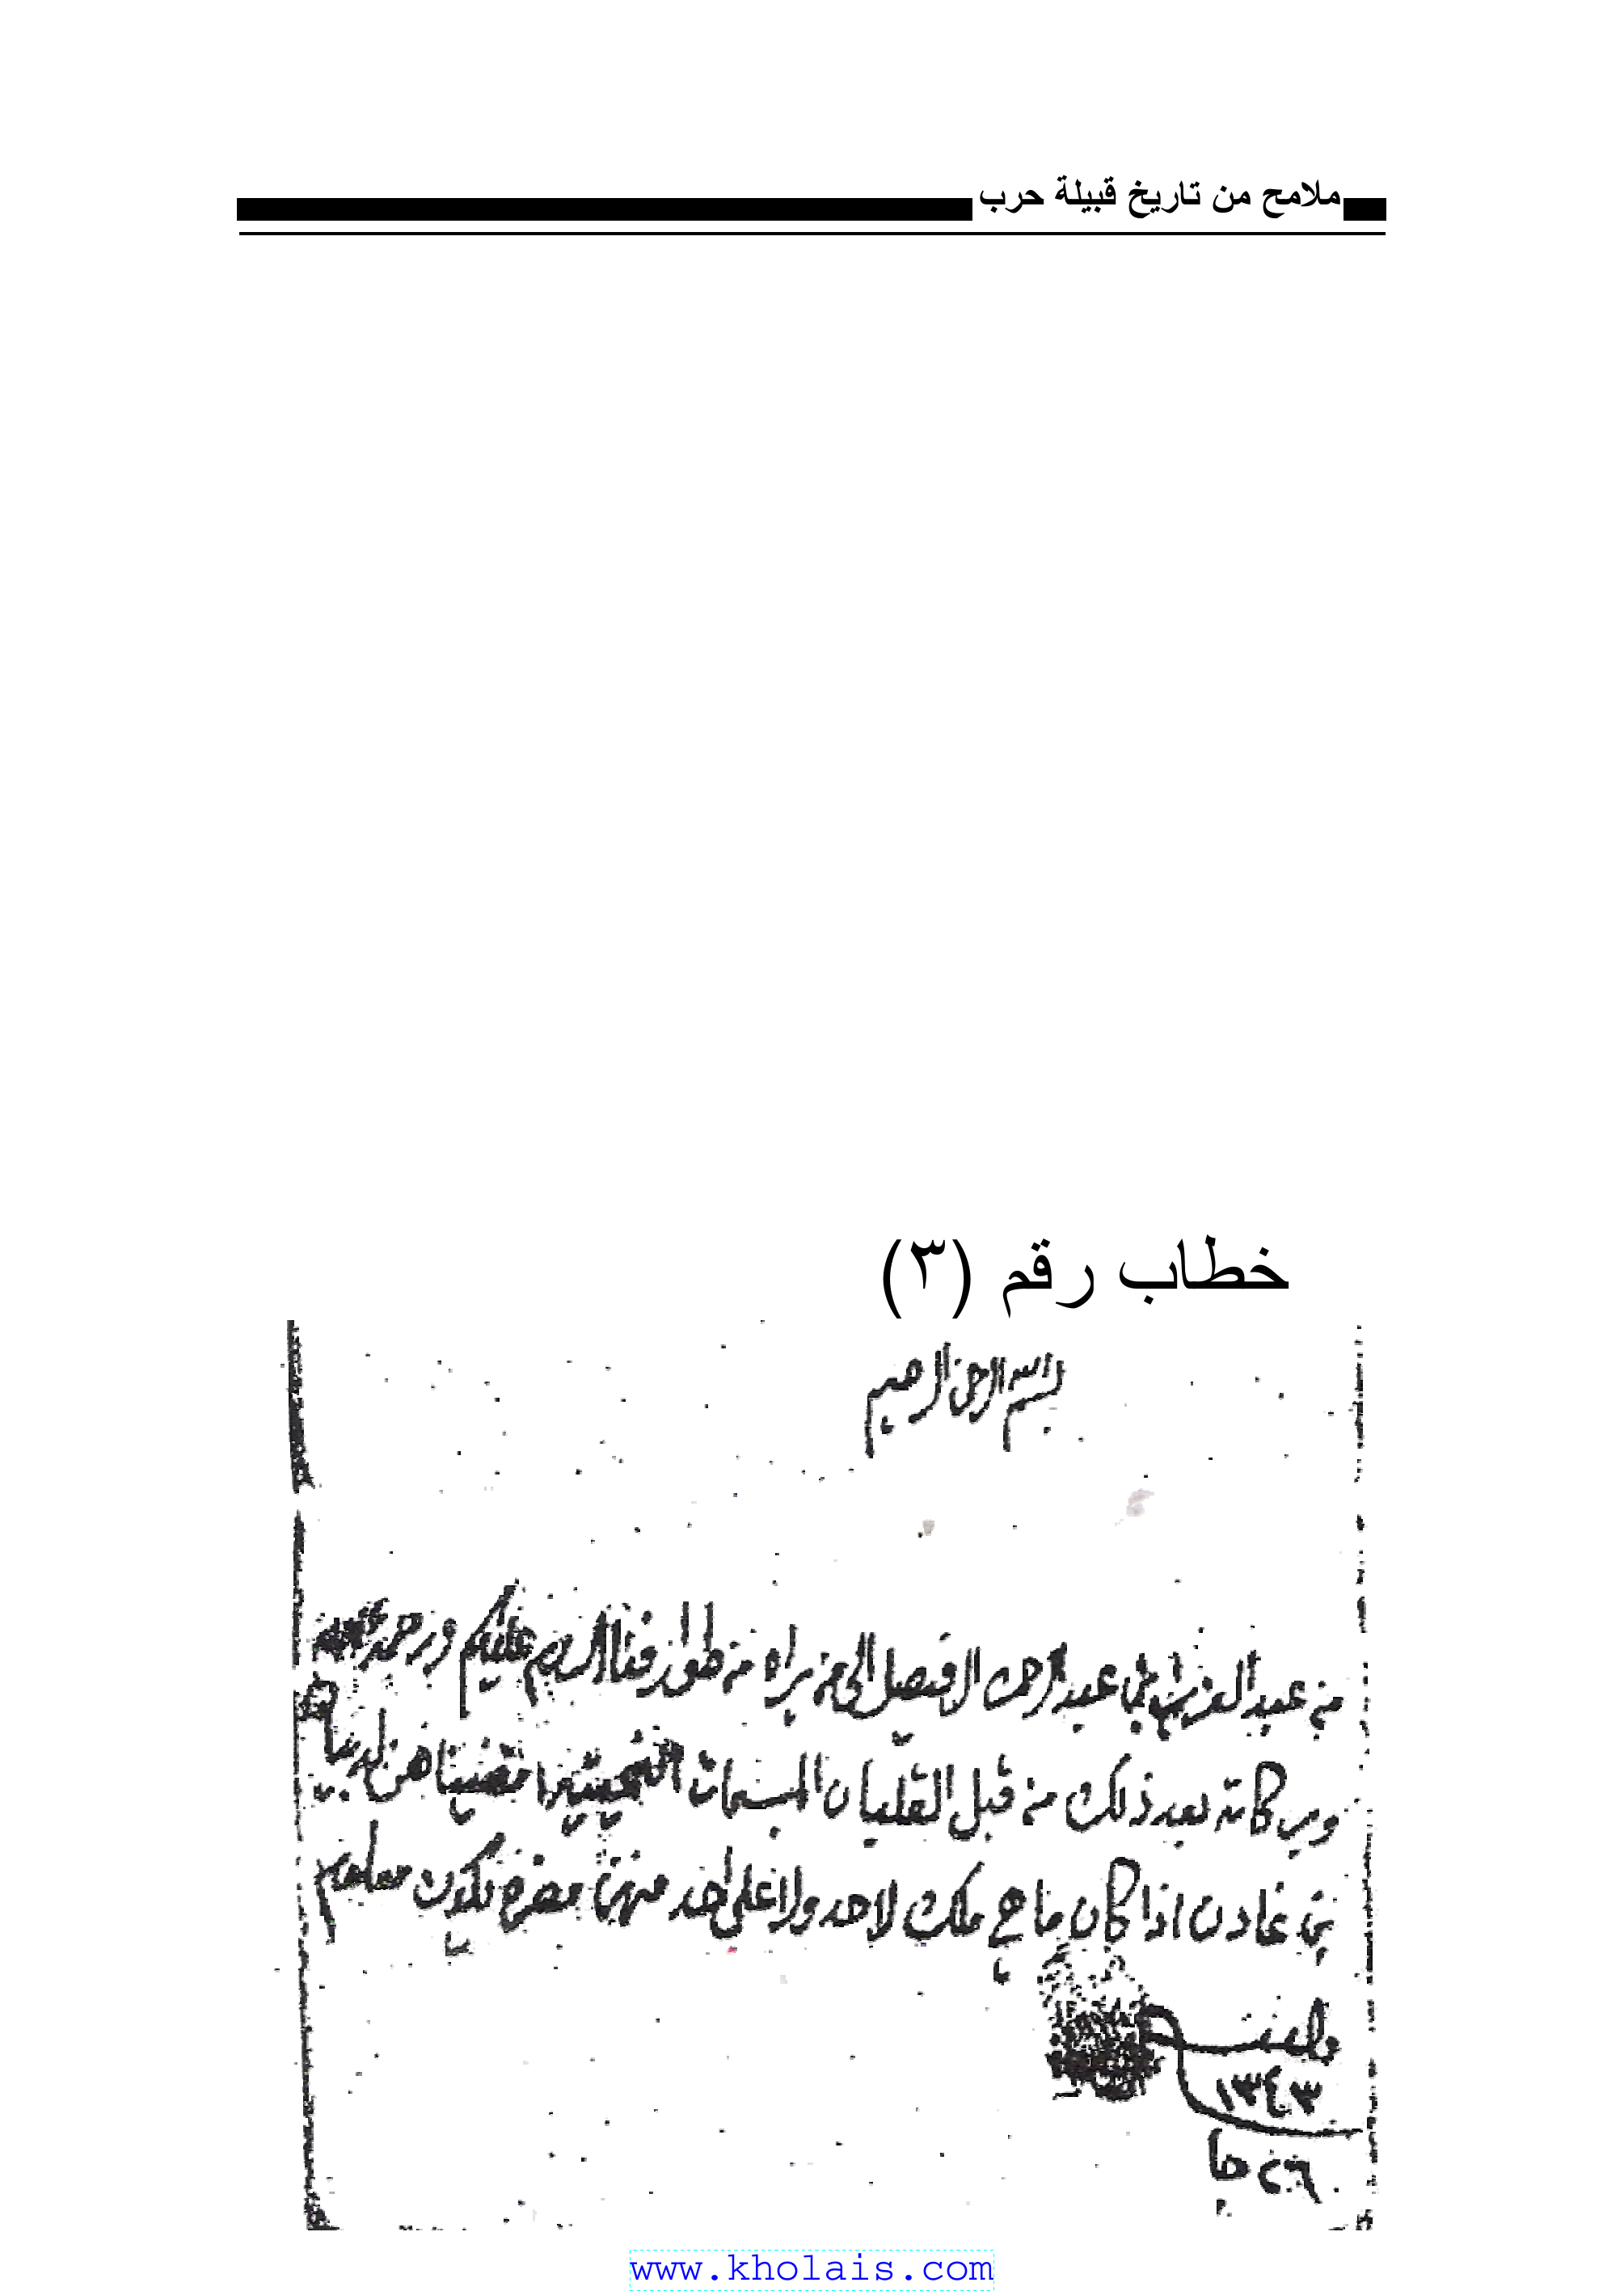 ملامح من تاريخ قبيلة حرب
خطاب رقم (٣)
بسم الله الرحمن الرحيم
من عبد العزيز بن عبد الرحمن الفيصل الى من يراه من طوارفنا السلام عليكم ورحمة الله
وبركاته بعد ذلك من قبل القلبان المسمات امضيناهن
بن غادن اذا كان ماهي ملك لاحد ولا على احد منهن مضره تكون معلوم
والسلام
١٣٤٣
٢٦ جا
www.kholais.com